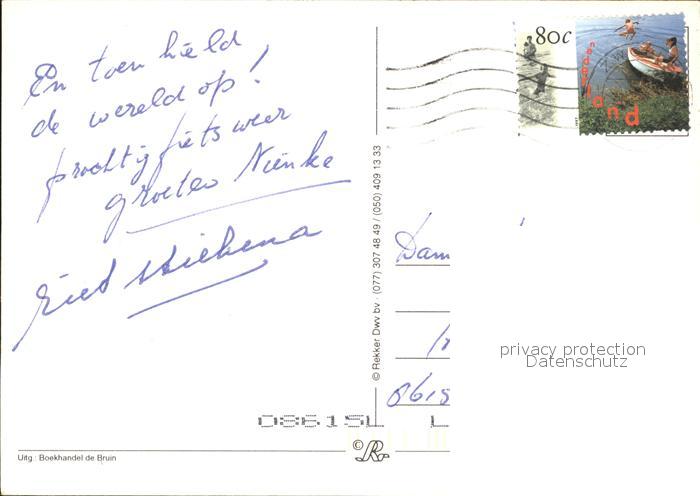 En toen hield
de wereld op!
prachtig fiets weer
groeten Nienke
80c
nederland
Dam
© Rekker Dwv bv · (077) 307 48 49 / (050) 409 13 33
privacy protection
Datenschutz
0861SL L
©R
Uitg.: Boekhandel de Bruin